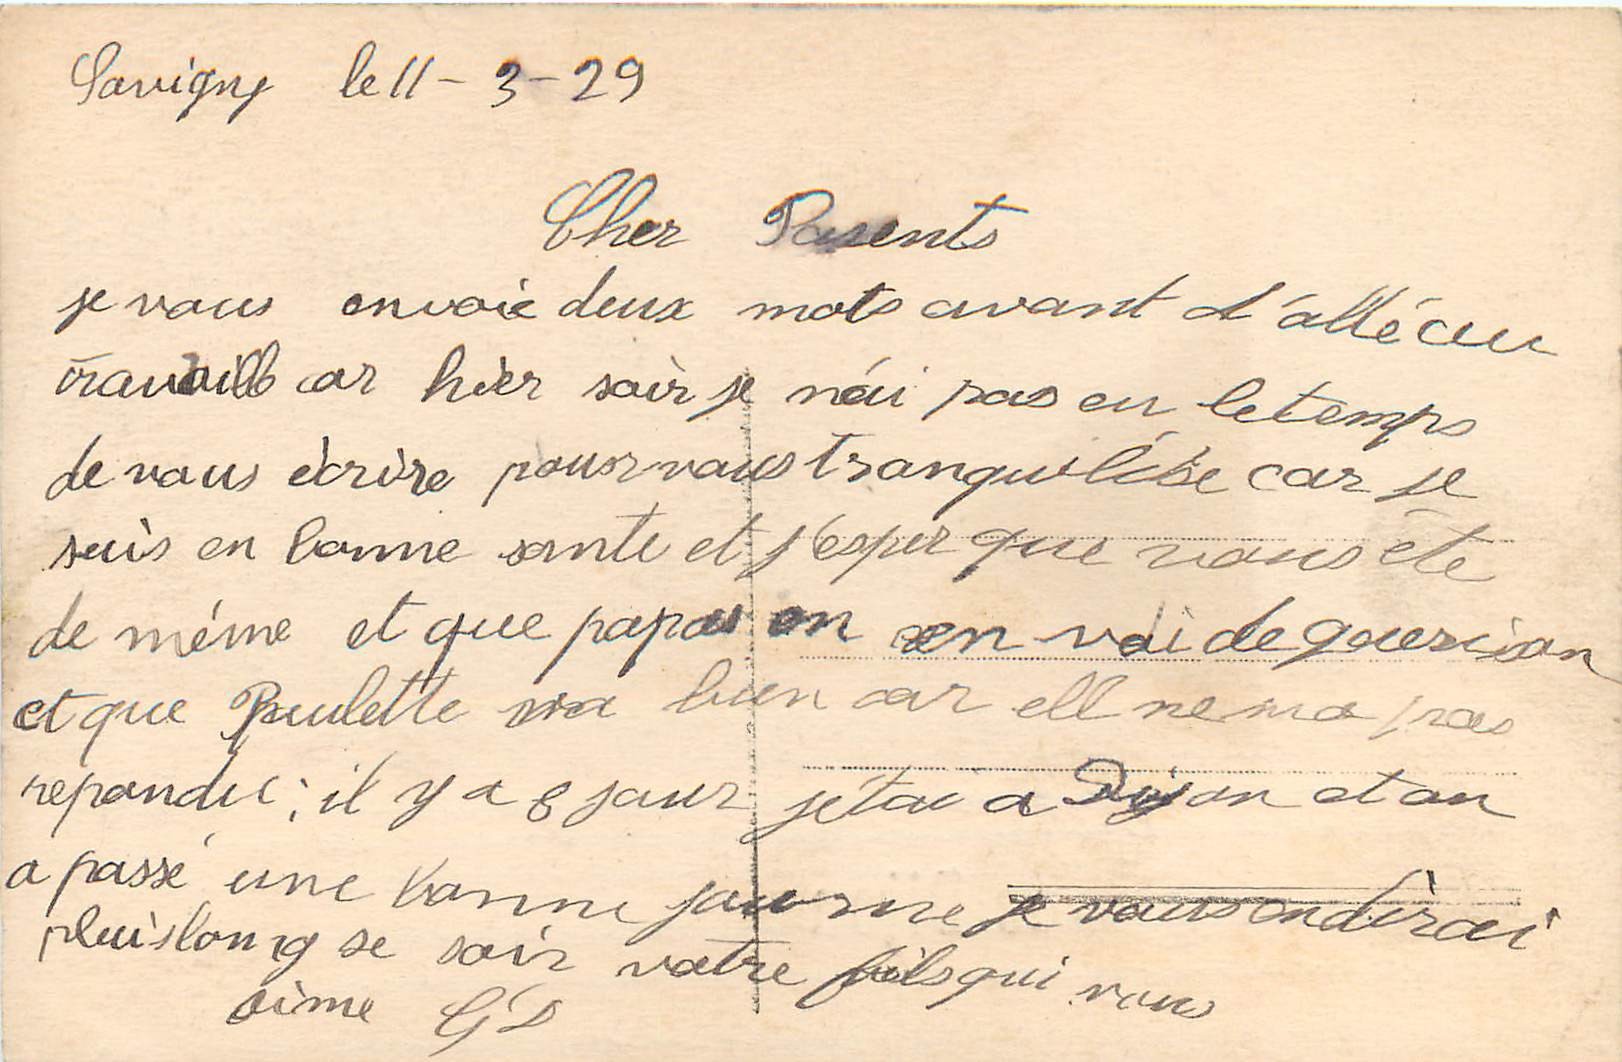 Savigny le 11-3-29
Cher Parents
je vous envoie deux mots avant d'allé au
travaille car hier soir je n'ai pas eu le temps
de vous écrire pour vous tranquilisé car je
suis en bonne sante et j'esper que vous éte
de méme et que papa en en voi de guerison
et que Paulette va bien car ell ne ma pas
repondu; il y a 8 jour j'étai a Dijon et on
a passé une bonne journe je vous en dirai
plus long se soir votre fils qui vous
aime GD